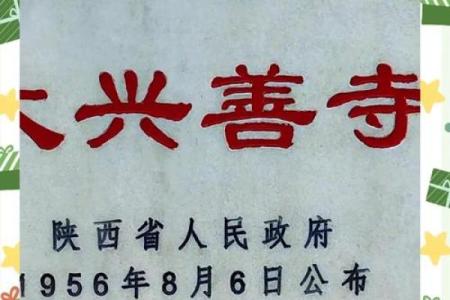 大兴善寺
陕西省人民政府
1956年8月6日公布